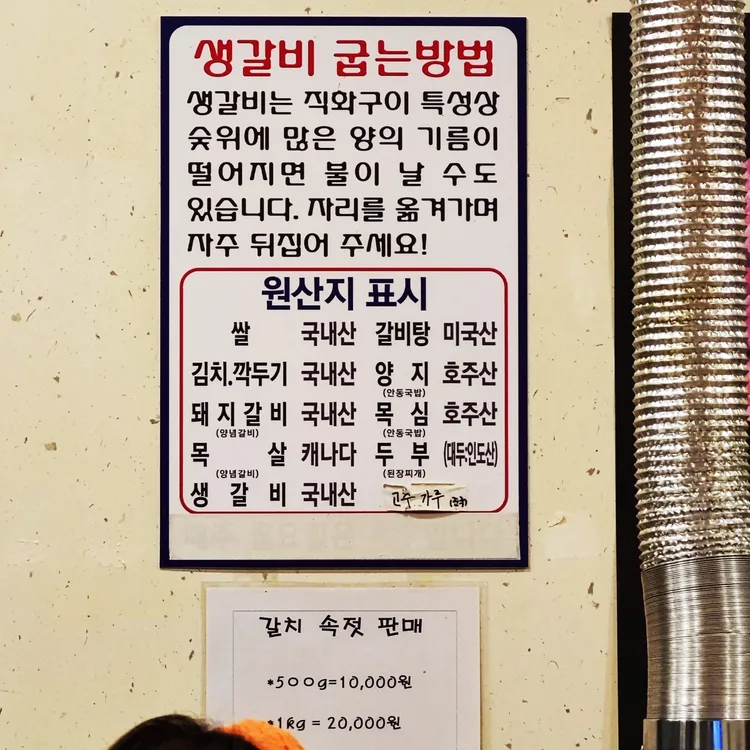 생갈비 굽는방법
생갈비는 직화구이 특성상
숯위에 많은 양의 기름이
떨어지면 불이 날 수도
있습니다. 자리를 옮겨가며
자주 뒤집어 주세요!
원산지 표시
쌀 국내산 갈비탕 미국산
김치.깍두기 국내산 양 지 호주산
(안동국밥)
돼지갈비 국내산 목 심 호주산
(양념갈비) (안동국밥)
목 살 캐나다 두 부 (대두:인도산)
(양념갈비) (된장찌개)
생 갈 비 국내산 고추 가루
갈치 속젓 판매
*500g=10,000원
*1kg = 20,000원